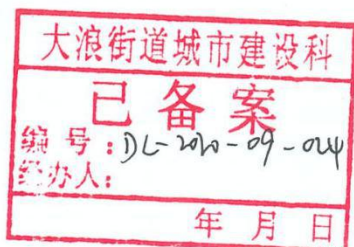 大浪街道城市建设科
已备案
编号:DL-2020-09-024
经办人:
年 月 日